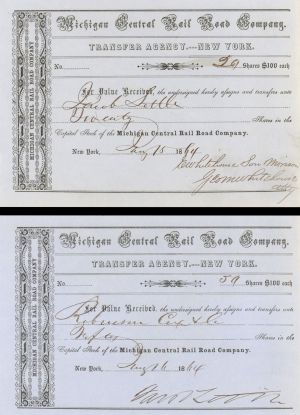 Michigan Central Rail Road Company.
TRANSFER AGENCY---NEW YORK.
No. 20 Shares $100 each
For Value Received, the undersigned hereby assigns and transfers unto
Jacob Little
Twenty Shares in the
Capital Stock of the Michigan Central Rail Road Company.
New York, Aug 15 1864
MICHIGAN CENTRAL RAIL ROAD COMPANY
Michigan Central Rail Road Company.
TRANSFER AGENCY---NEW YORK.
No. 50 Shares $100 each
For Value Received, the undersigned hereby assigns and transfers unto
Robinson Cox & Co
Fifty Shares in the
Capital Stock of the Michigan Central Rail Road Company.
New York, Aug 16 1864
MICHIGAN CENTRAL RAIL ROAD COMPANY